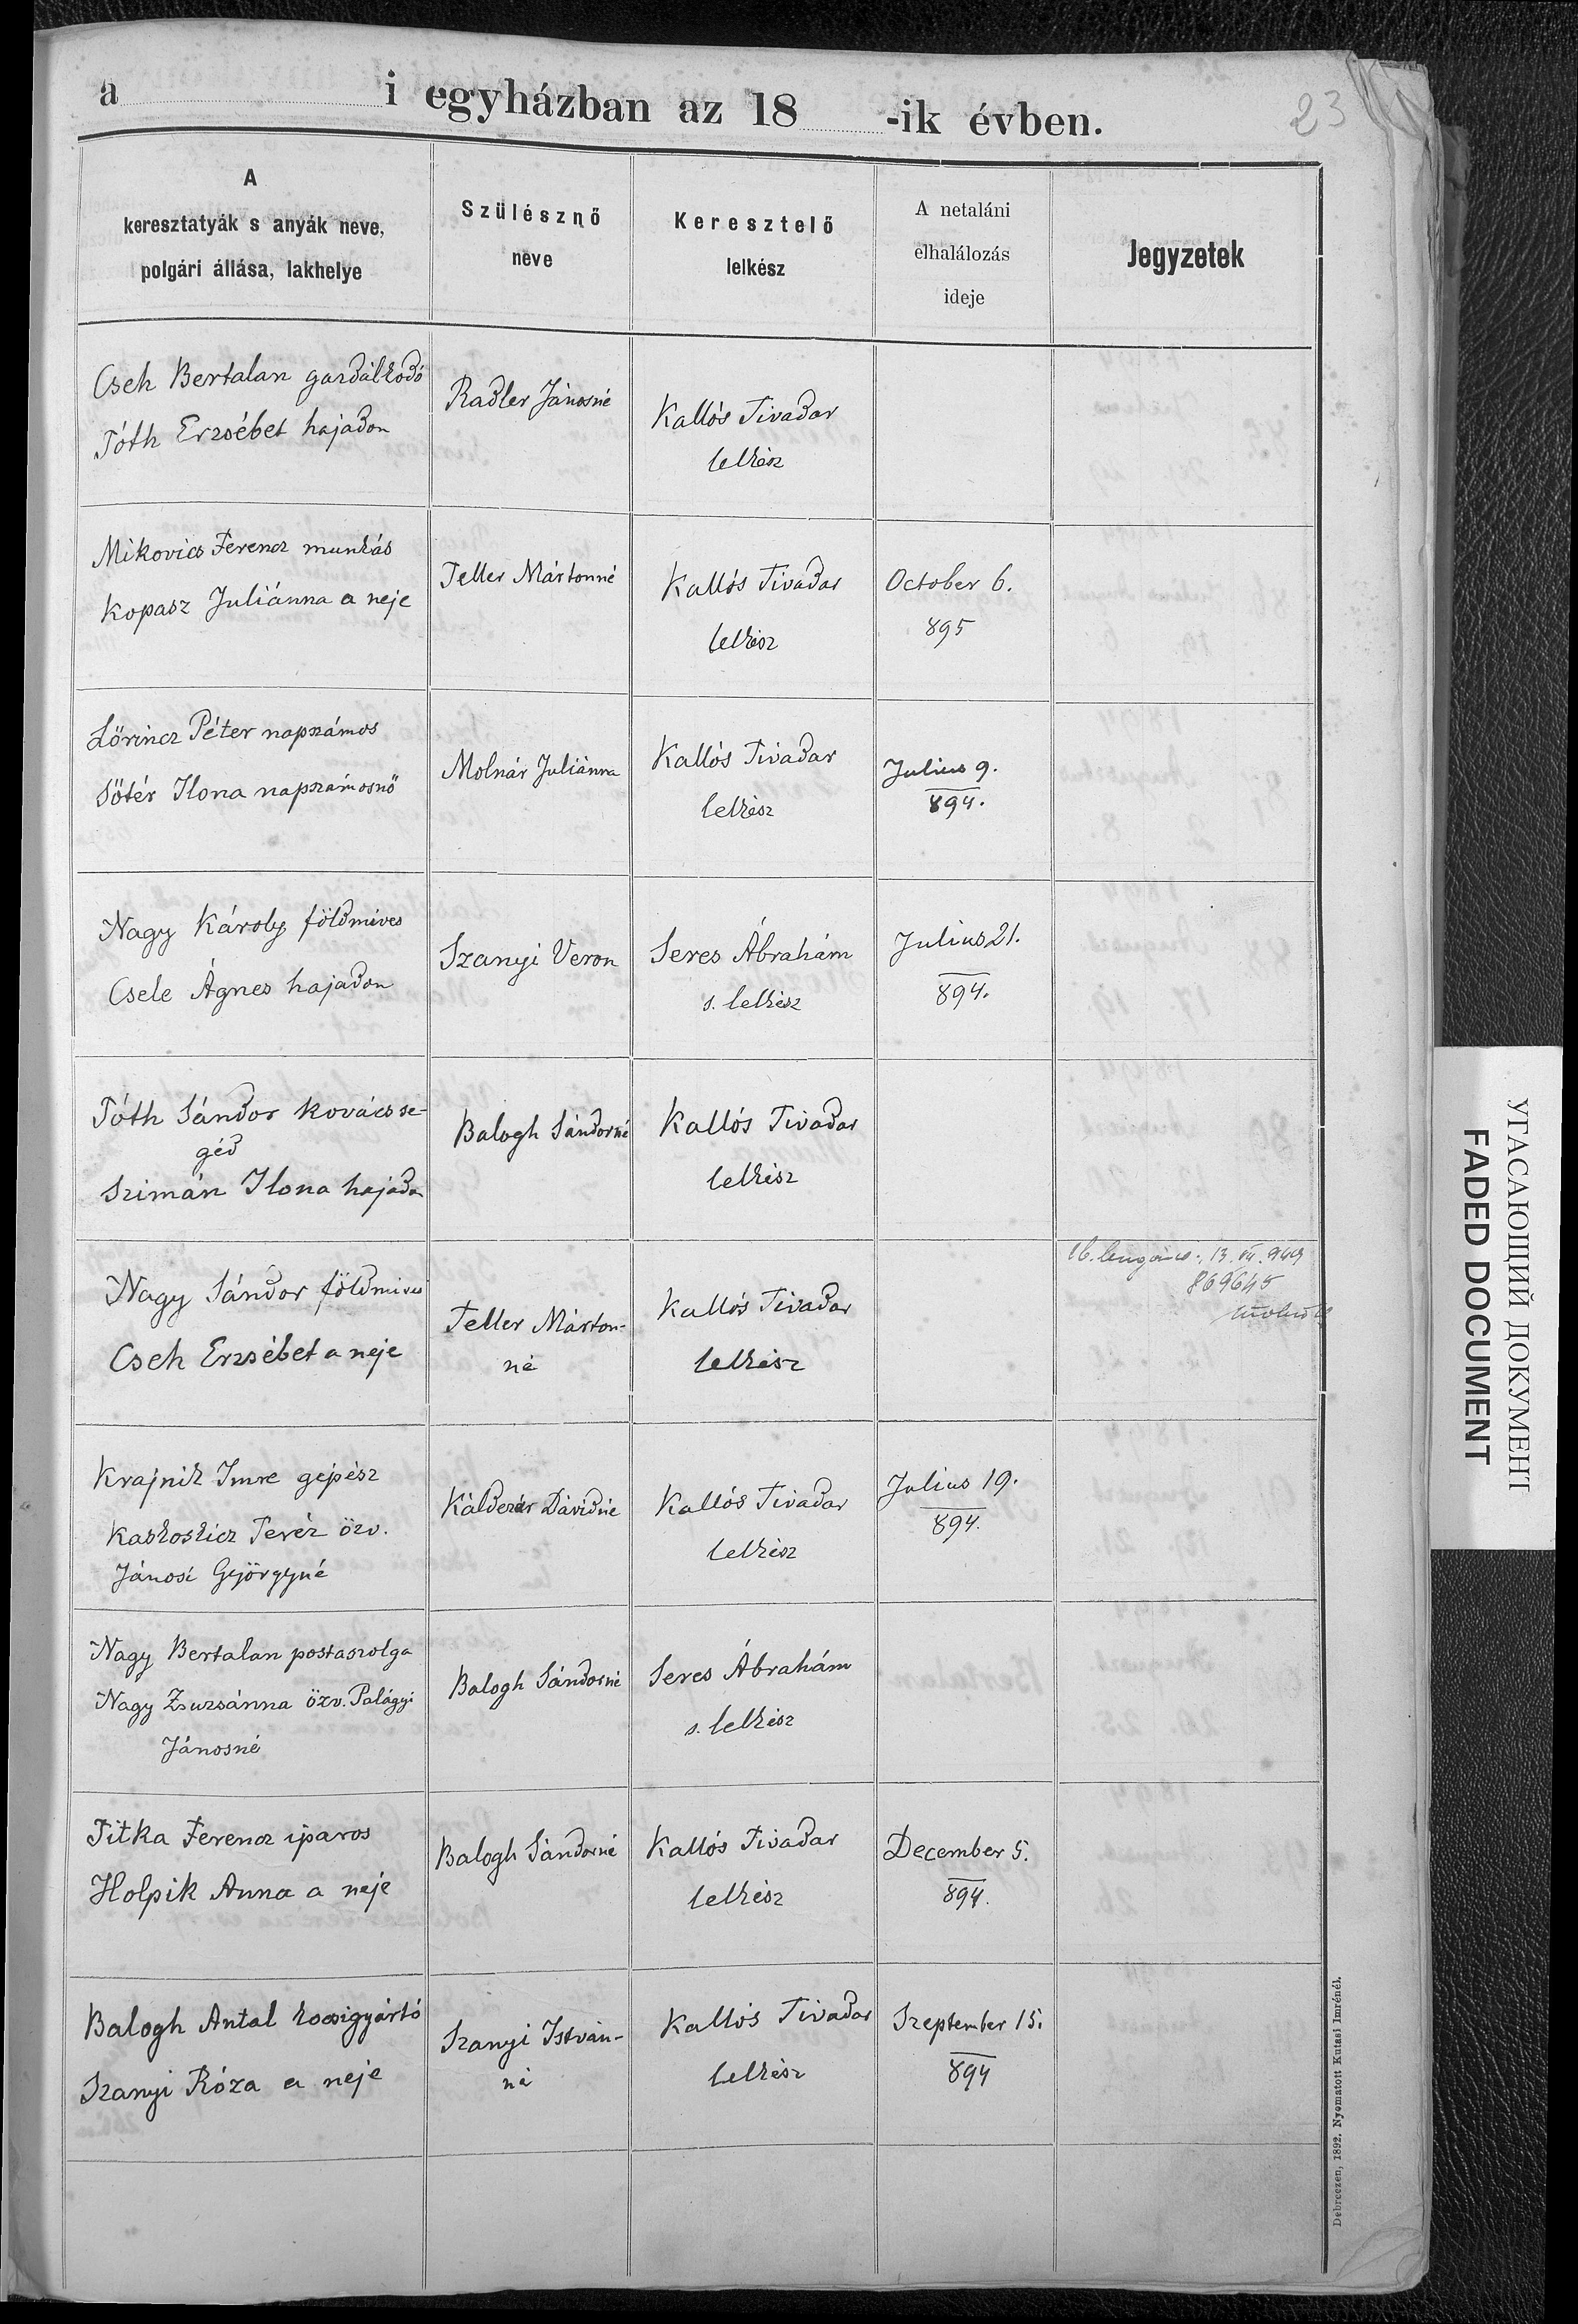 a i egyházban az 18 -ik évben.
23
A
keresztatyák s anyák neve,
polgári állása, lakhelye
Szülésznő
neve
Keresztelő
lelkész
A netaláni
elhalálozás
ideje
Jegyzetek
Cseh Bertalan gazdálkodó
Tóth Erzsébet hajadon
Radler Jánosné
Kallós Tivadar
lelkész
Mikovics Ferencz munkás
Kopasz Juliánna a neje
Teller Mártonné
Kallós Tivadar
lelkész
October 6.
895
Lőrincz Péter napszámos
Sőtér Ilona napszámosnő
Molnár Juliánna
Kallós Tivadar
lelkész
Julius 9.
894.
Nagy Károly földmíves
Csele Ágnes hajadon
Szanyi Veron
Seres Ábrahám
s. lelkész
Julius 21.
894.
Tóth Sándor kovács se-
géd
Szimán Ilona hajadon
Balogh Sándorné
Kallós Tivadar
lelkész
Nagy Sándor földmives
Cseh Erzsébet a neje
Teller Márton-
né
Kallós Tivadar
lelkész
13. VII. 949
869645
Krajnik Imre gépész
Teréz özv.
Jánosi Györgyné
Dávidné
Kallós Tivadar
lelkész
Julius 19.
894.
Nagy Bertalan postaszolga
Nagy Zsuzsánna özv. Palágyi
Jánosné
Balogh Sándorné
Seres Ábrahám
s. lelkész
Titka Ferencz iparos
Holpik Anna a neje
Balogh Sándorné
Kallós Tivadar
lelkész
December 5.
894.
Balogh Antal kocsigyártó
Szanyi Róza a neje
Szanyi István-
né
Kallós Tivadar
lelkész
Szeptember 15.
894
Debreczen, 1892. Nyomatott Kutasi Imrénél.
УГАСАЮЩИЙ ДОКУМЕНТ
FADED DOCUMENT